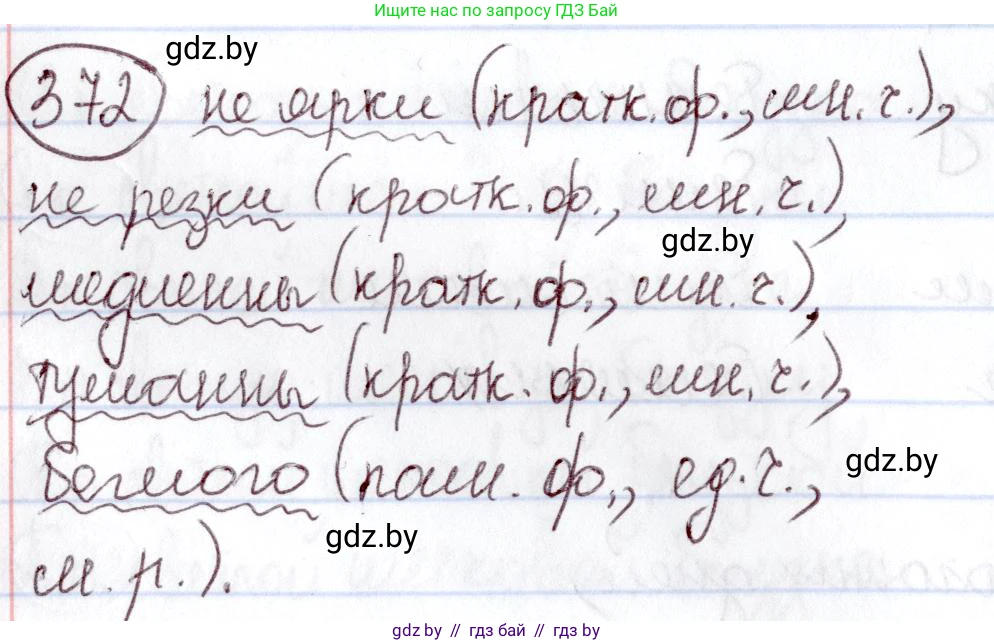 Ищите нас по запросу ГДЗ Бай
gdz.by
372 не ярки (кратк. ф., мн. ч.),
не резки (кратк. ф., мн. ч.),
gdz.by
медленны (кратк. ф., мн. ч.),
туманны (кратк. ф., мн. ч.),
беглого (полн. ф., ед. ч.,
gdz.by
gdz.by
м. р.).
gdz.by // гдз бай // гдз by